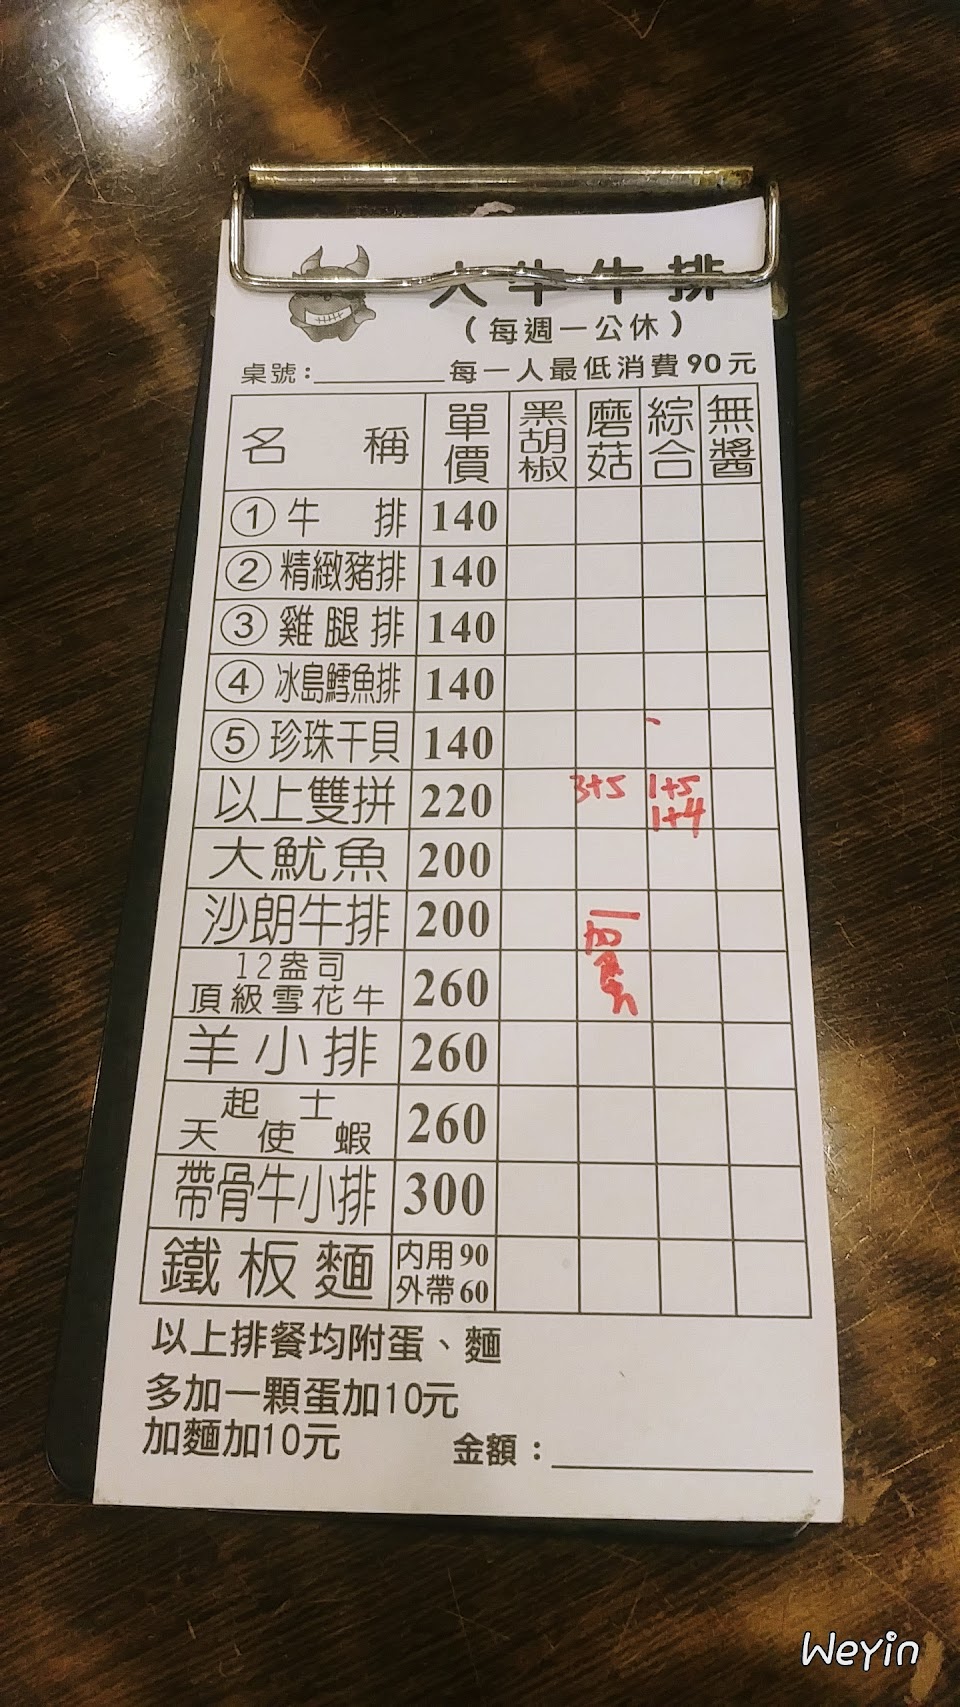 大牛牛排
(每週一公休)
桌號:________每一人最低消費90元
名稱 單價 黑胡椒 磨菇 綜合 無醬
①牛排 140
②精緻豬排 140
③雞腿排 140
④冰島鱈魚排 140
⑤珍珠干貝 140
以上雙拼 220 3+5 1+5
1+4
大魷魚 200
沙朗牛排 200 一
加麵
12盎司
頂級雪花牛 260
羊小排 260
起士
天使蝦 260
帶骨牛小排 300
鐵板麵 內用90
外帶60
以上排餐均附蛋、麵
多加一顆蛋加10元
加麵加10元
金額:________
Weyin